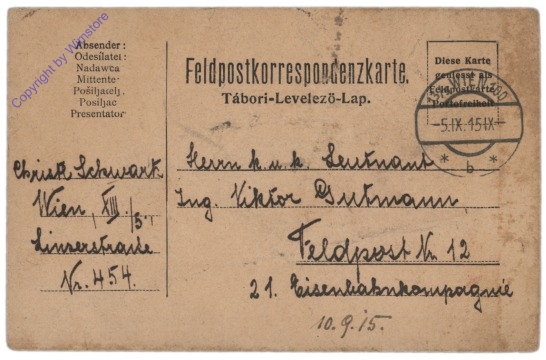 Copyright by Wnstore
Absender:
Odesílatel:
Nadawca
Mittente
Pošiljatelj
Posiljac
Presentator
Feldpostkorrespondenzkarte.
Tábori-Levelező-Lap.
Diese Karte
geniesse als
Feldpostkarte
Portofreiheit
WIEN
-5.IX.15 IX-
* b *
Schwark
Wien, XIII/5
Linzerstraße
Nr. 454.
Herrn k.u.k. Leutnant
Ing. Viktor Gutmann
Feldpost Nr. 12
21. Eisenbahnkompagnie
10.9.15.